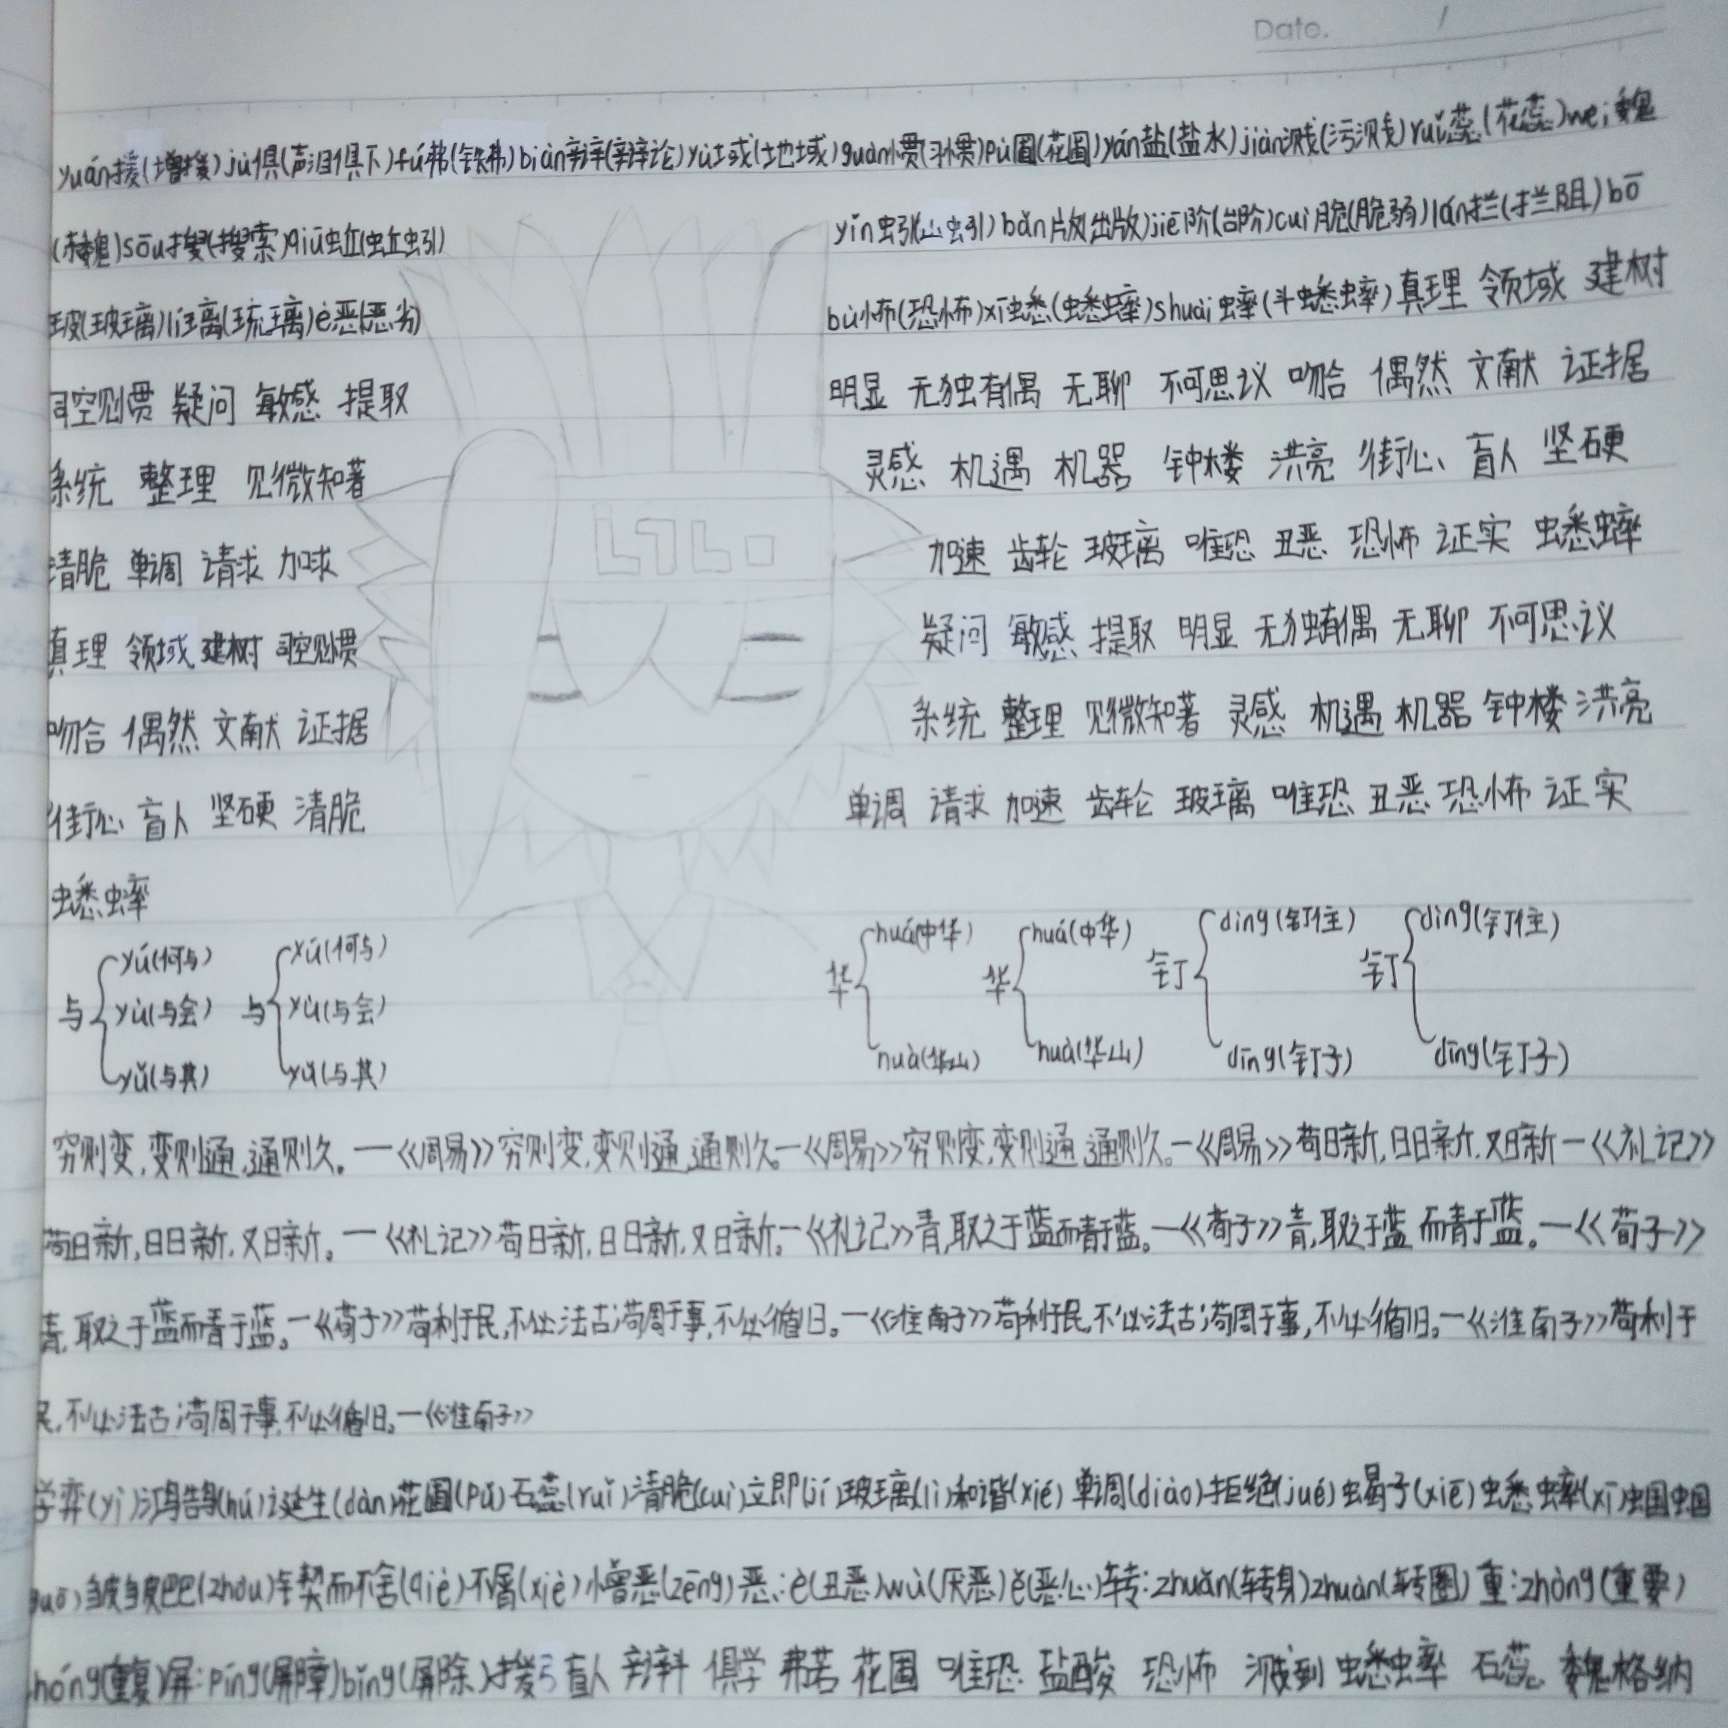 Date. /
yuán援(增援)jù俱(声泪俱下)fú弗(铁弗)biàn辩(辩论)yù域(地域)guàn惯(习惯)pǔ圃(花圃)yán盐(盐水)jiàn溅(污溅)ruǐ蕊(花蕊)wèi魏
(魏)sōu搜(搜索)qiū蚯(蚯蚓) yǐn蚓(山蚓)bǎn版(出版)jiē阶(台阶)cuì脆(脆弱)lán拦(拦阻)bō
玻(玻璃)lí璃(琉璃)è恶(恶劣) bù怖(恐怖)xī蟋(蟋蟀)shuài蟀(斗蟋蟀)真理 领域 建树
司空见惯 疑问 敏感 提取 明显 无独有偶 无聊 不可思议 吻合 偶然 文献 证据
系统 整理 见微知著 灵感 机遇 机器 钟楼 洪亮 街心 盲人 坚硬
清脆 单调 请求 加求 加速 齿轮 玻璃 唯恐 丑恶 恐怖 证实 蟋蟀
真理 领域 建树 司空见惯 疑问 敏感 提取 明显 无独有偶 无聊 不可思议
吻合 偶然 文献 证据 系统 整理 见微知著 灵感 机遇 机器 钟楼 洪亮
街心 盲人 坚硬 清脆 单调 请求 加速 齿轮 玻璃 唯恐 丑恶 恐怖 证实
蟋蟀
与 yú(何与) yù(与会) yǔ(与其) 与 yú(何与) yù(与会) yǔ(与其) 华 huá(中华) huà(华山) 华 huá(中华) huà(华山) 钉 dìng(钉住) dīng(钉子) 钉 dìng(钉住) dīng(钉子)
穷则变,变则通,通则久。—《周易》穷则变,变则通,通则久。—《周易》穷则变,变则通,通则久。—《周易》苟日新,日日新,又日新—《礼记》
苟日新,日日新,又日新。—《礼记》苟日新,日日新,又日新。—《礼记》青,取之于蓝而青于蓝。—《荀子》青,取之于蓝而青于蓝。—《荀子》
青,取之于蓝而青于蓝。—《荀子》苟利于民,不必法古;苟周于事,不必循旧。—《淮南子》苟利于民,不必法古;苟周于事,不必循旧。—《淮南子》苟利于
民,不必法古;苟周于事,不必循旧。—《淮南子》
学弈(yì)鸿鹄(hú)诞生(dàn)花圃(pǔ)石蕊(ruǐ)清脆(cuì)立即(jí)玻璃(lí)和谐(xié)单调(diào)拒绝(jué)蝎子(xiē)蟋蟀(xī)蝈蝈
guō)皱巴巴(zhòu)锲而不舍(qiè)不屑(xiè)憎恶(zēng)恶:è(丑恶)wù(厌恶)ě(恶心)转:zhuǎn(转身)zhuàn(转圈)重:zhòng(重要)
hóng(重复)屏:píng(屏障)bǐng(屏除)援弓 盲人 辩斗 俱学 弗若 花圃 唯恐 盐酸 恐怖 溅到 蟋蟀 石蕊 魏格纳
LTLO